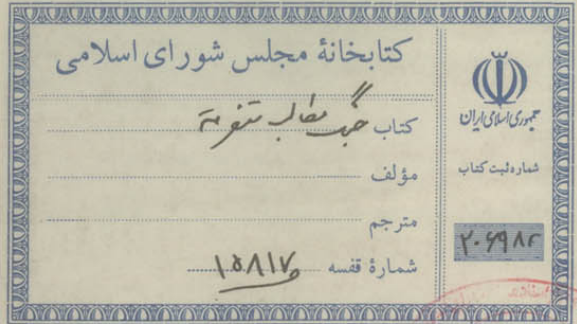 کتابخانهٔ مجلس شورای اسلامی
کتاب جنگ مطالب متفرقه
مؤلف
مترجم
شمارهٔ قفسه ۱۵۸۱۷
جمهوری اسلامی ایران
شماره ثبت کتاب
۲۰۶۹۸۲